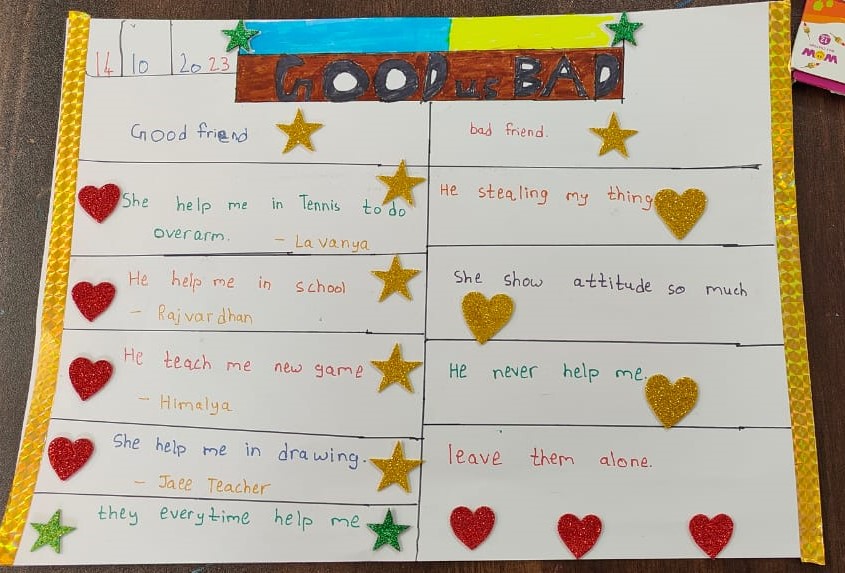 14 10 2023
GOOD us BAD
Good friend
She help me in Tennis to do
overarm. - Lavanya
He help me in school
- Rajvardhan
He teach me new game
- Himalya
She help me in drawing.
- Jaee Teacher
they everytime help me
bad friend.
He stealing my thing
She show attitude so much
He never help me.
leave them alone.
WOW
12